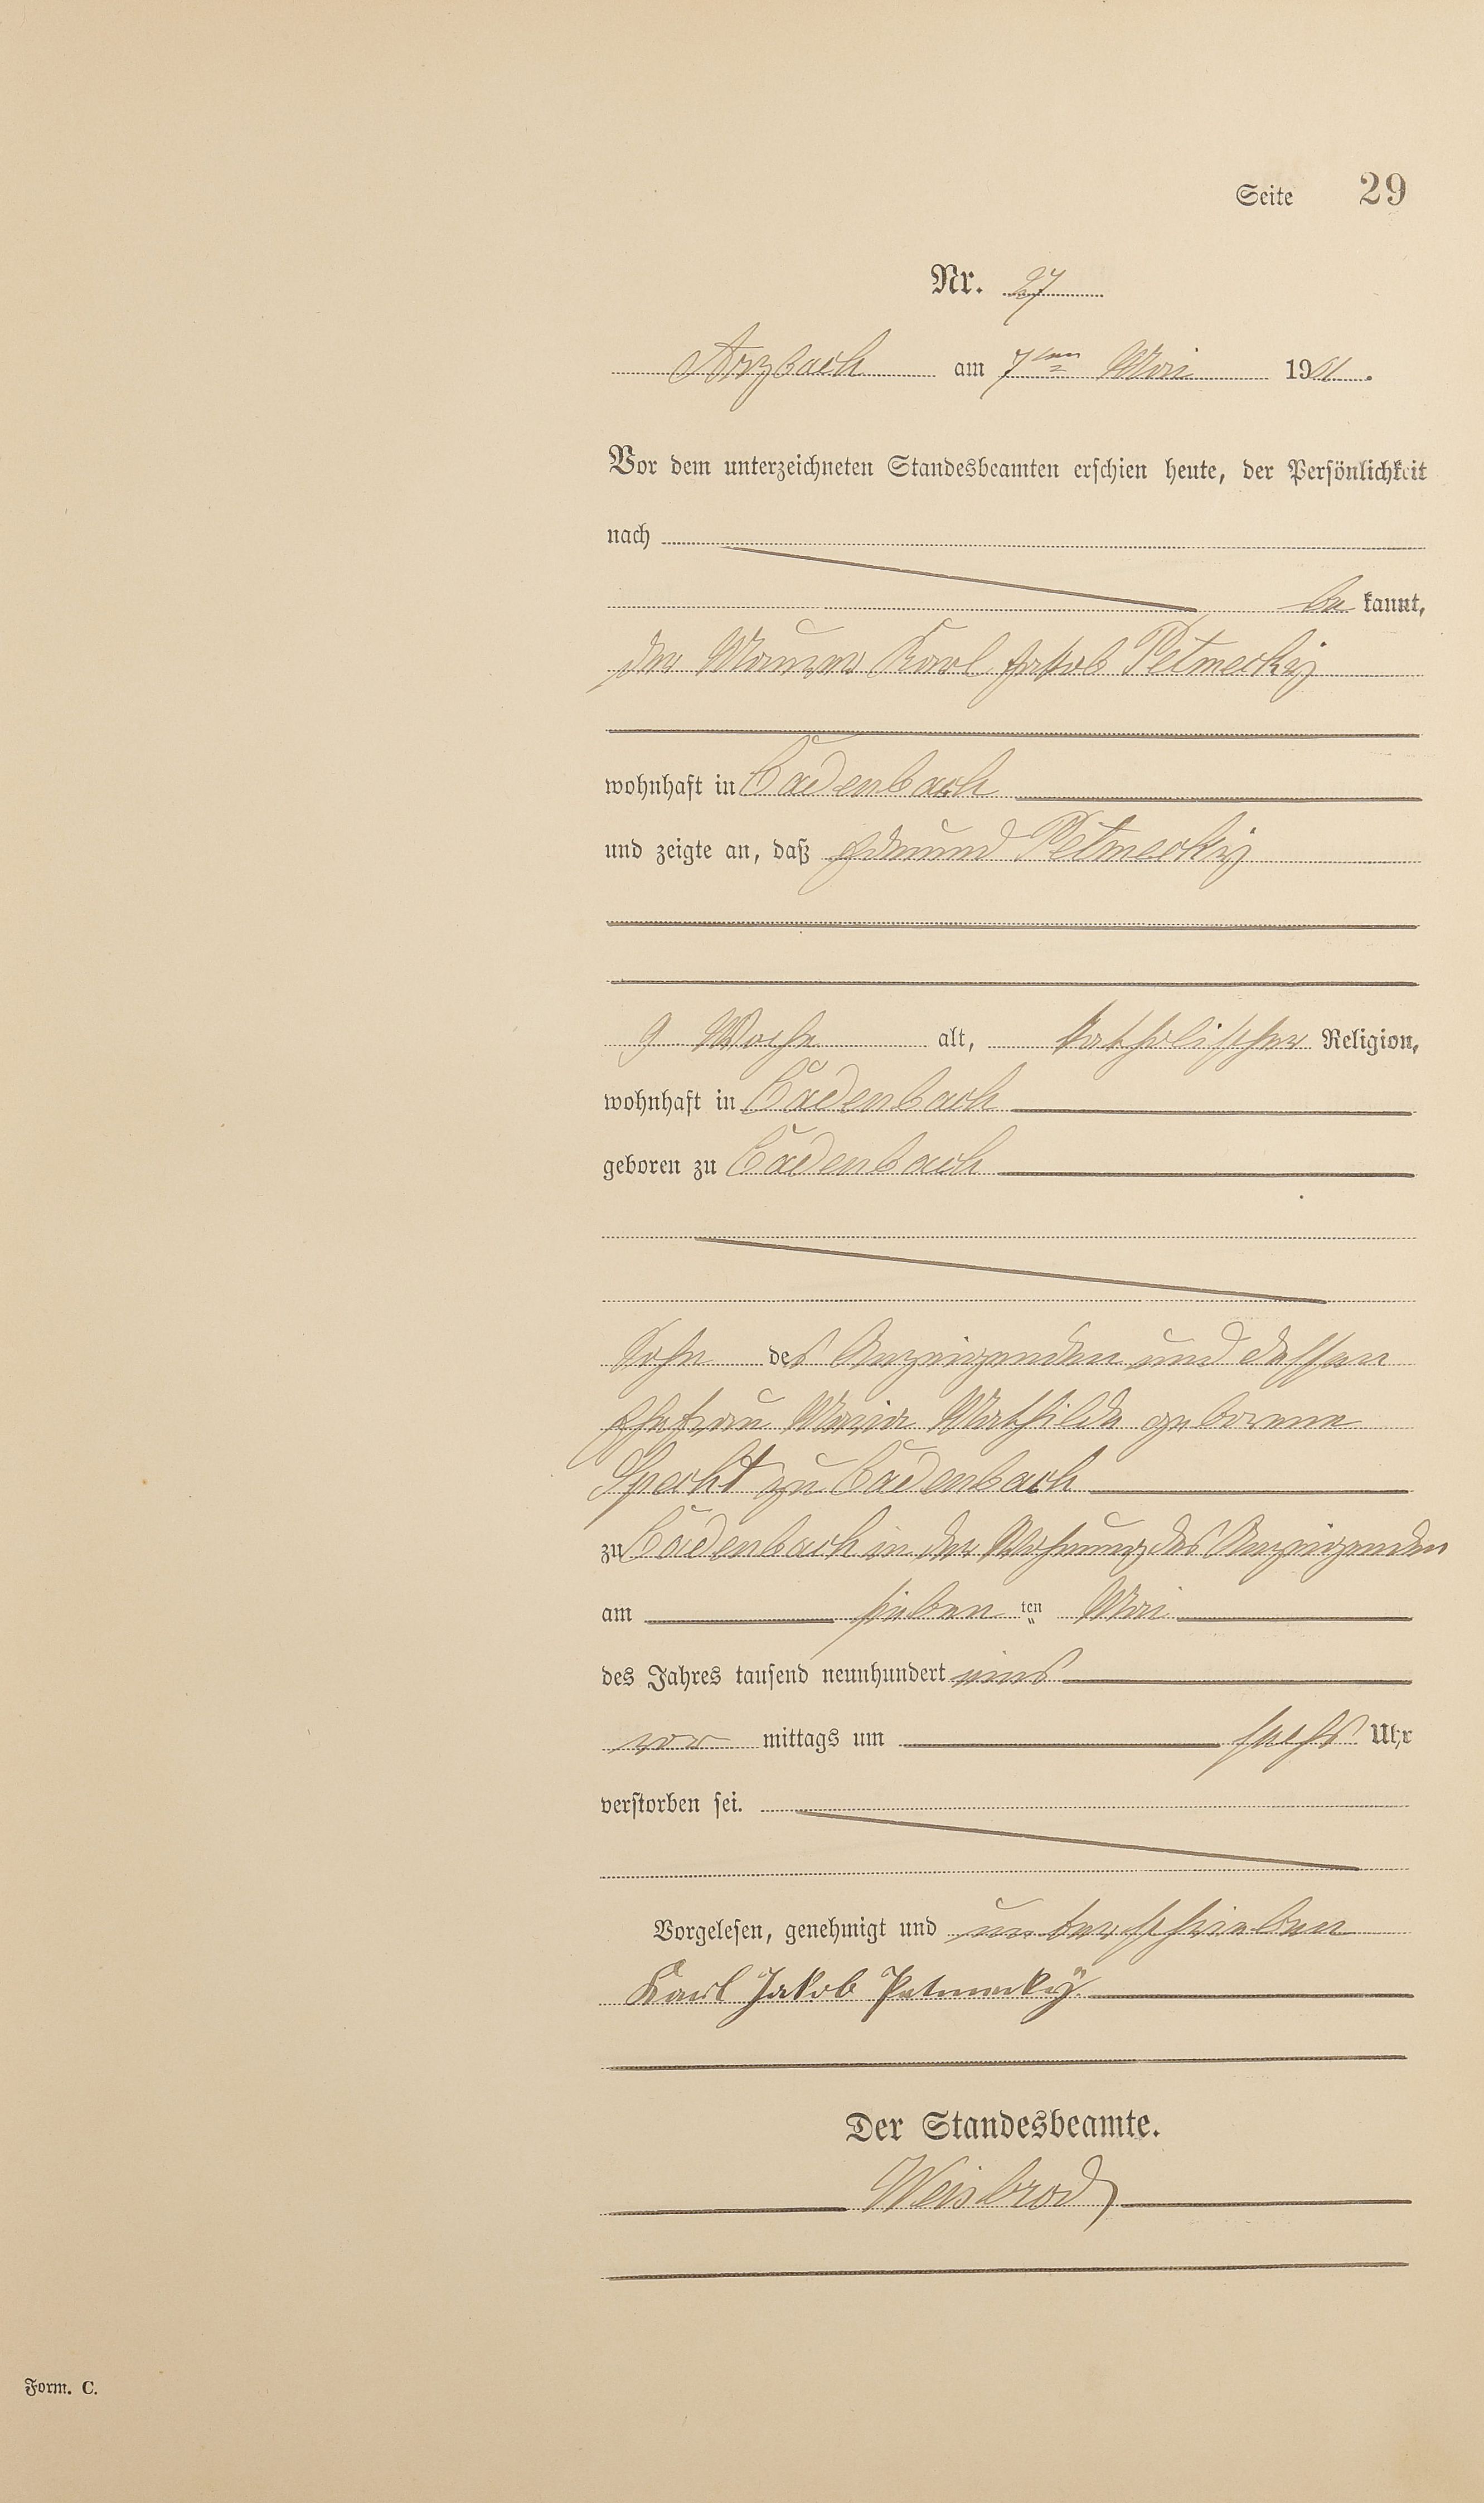 Seite 29
Nr. 27
Arzbach am 7ten Mai 1901.
Vor dem unterzeichneten Standesbeamten erschien heute, der Persönlichkeit
nach
be kannt,
der Maurer Karl Jakob Petmecky
wohnhaft in Cadenbach
und zeigte an, daß Edmund Petmecky
9 Woche alt, katholischer Religion,
wohnhaft in Cadenbach
geboren zu Cadenbach
Sohn des Anzeigenden und dessen
Ehefrau Maria Mathilde geborene
Specht zu Cadenbach
zu Cadenbach in der Wohnung des Anzeigenden
am sieben ten Mai
des Jahres tausend neunhundert eins
vor mittags um sechs Uhr
verstorben sei.
Vorgelesen, genehmigt und unterschrieben
Karl Jakob Petmecky
Der Standesbeamte.
Weisbrod
Form. C.